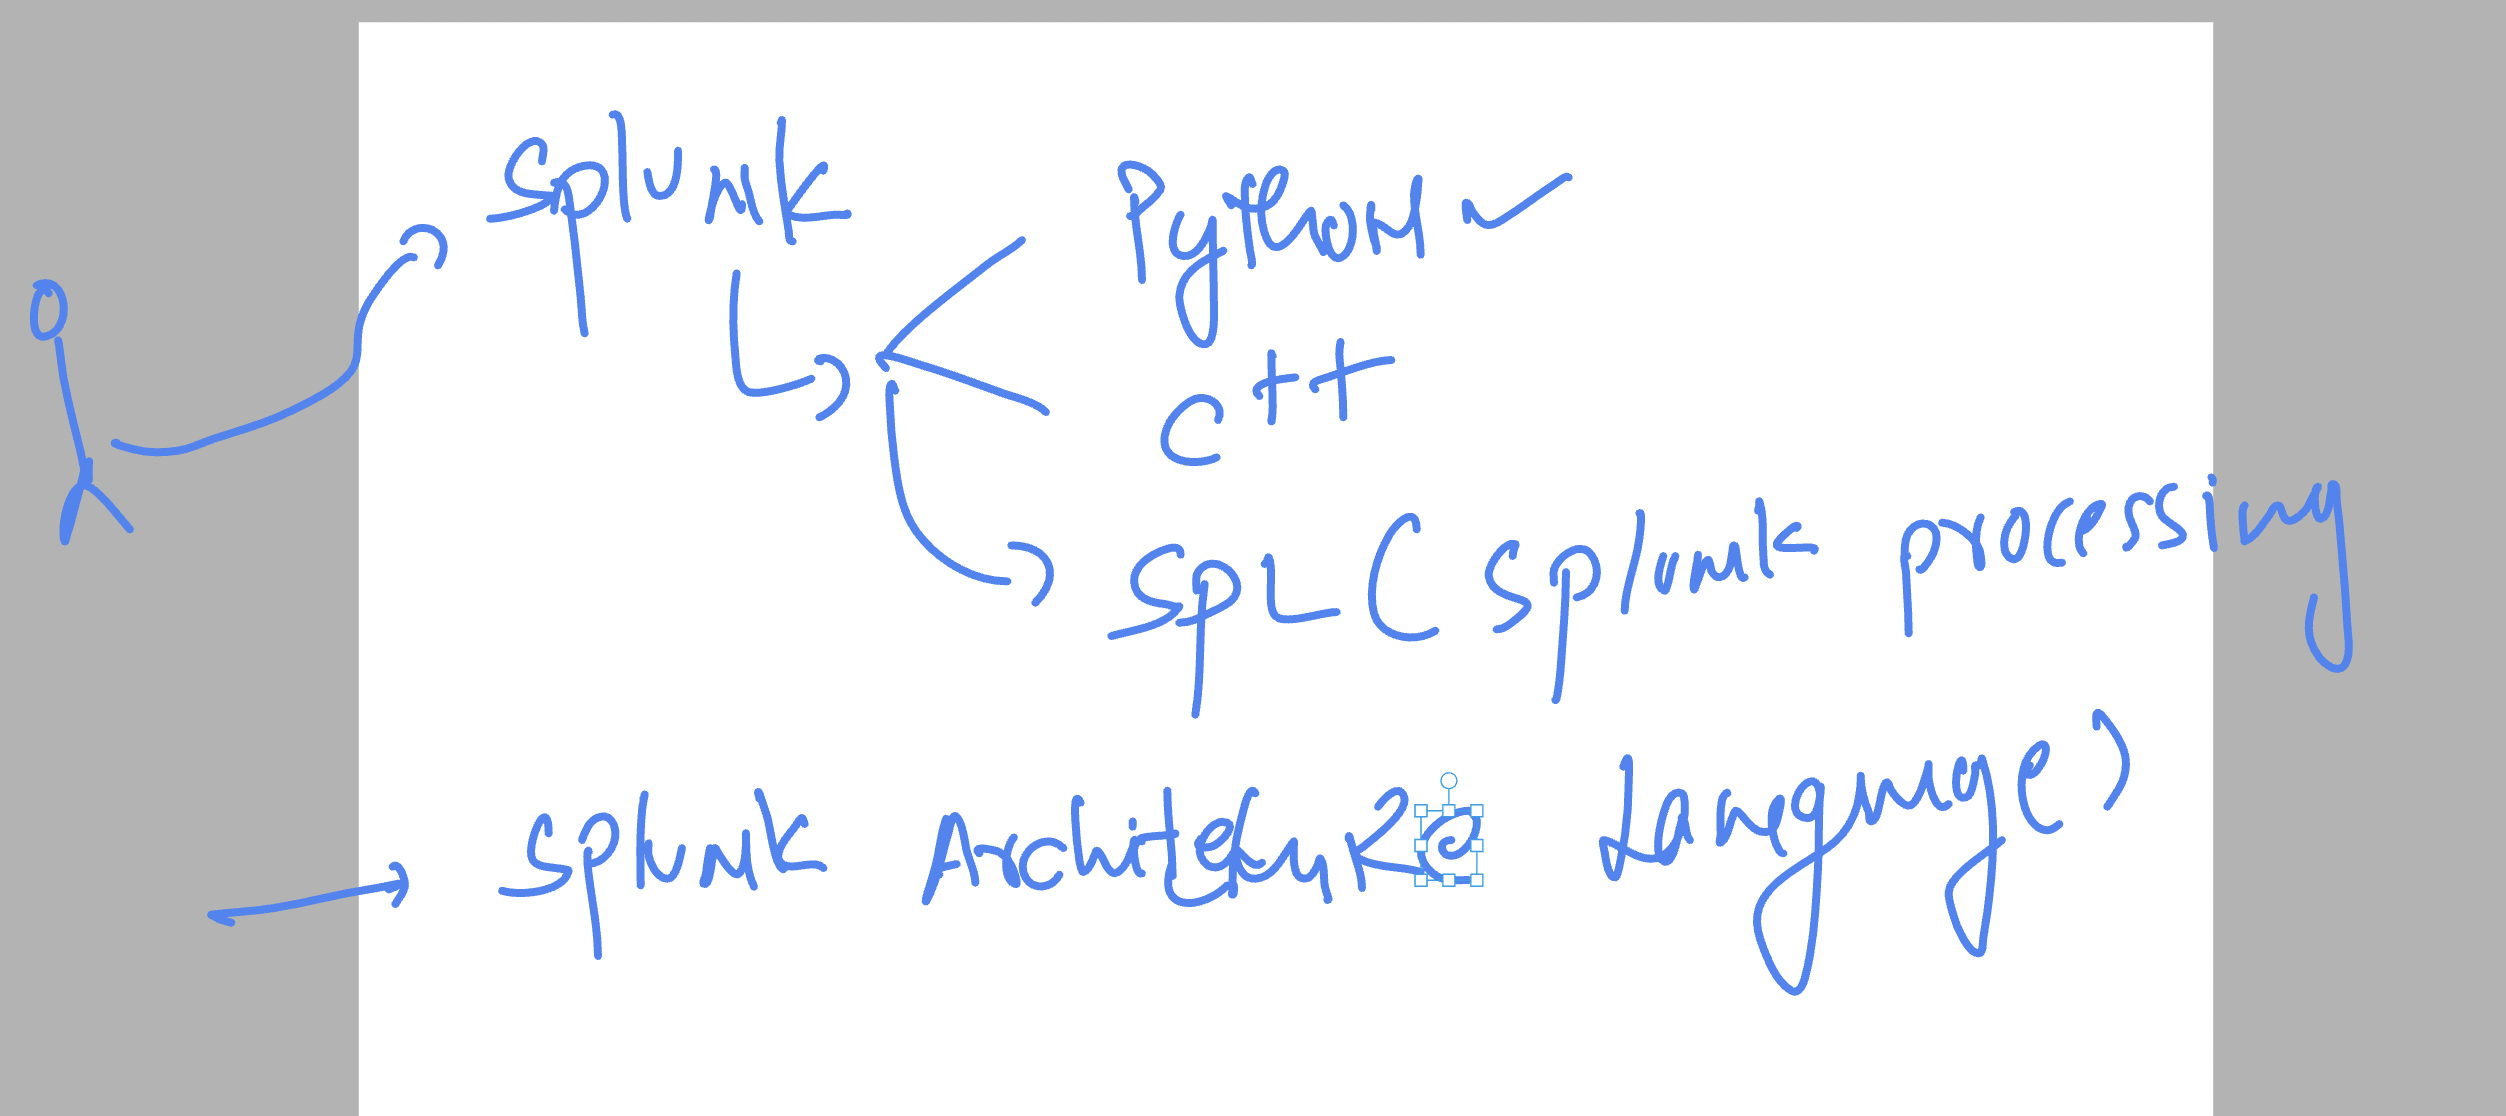 Splunk
Python
C++
SPL ( Splunk processing
Language)
Splunk Architecture